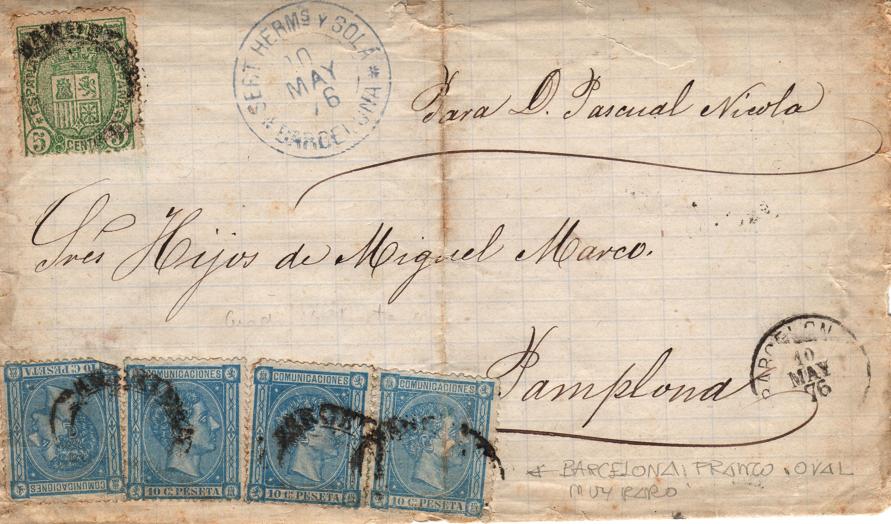 SERT HERMs Y SOLÁ
10
MAY
76
* BARCELONA *
5 CENTs 5
Para D. Pascual Nicola
Srés Hijos de Miguel Marco.
Pamplona
BARCELON
10
MAY
76
COMUNICACIONES
10 C. PESETA
COMUNICACIONES
10 C. PESETA
COMUNICACIONES
10 C. PESETA
COMUNICACIONES
10 C. PESETA
* BARCELONA: FRANCO. OVAL
MUY RARO